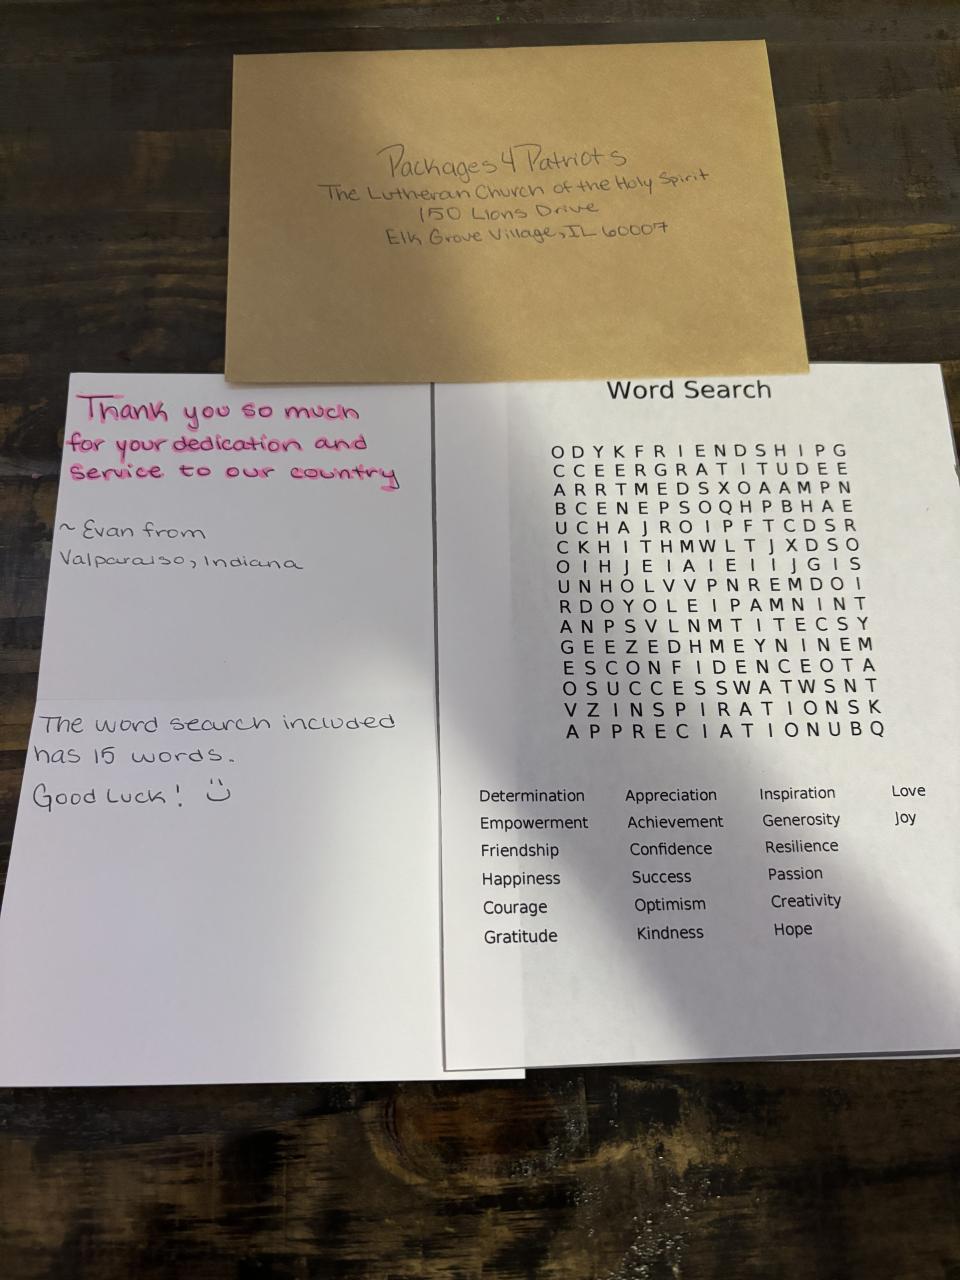 Packages 4 Patriots
The Lutheran Church of the Holy Spirit
150 Lions Drive
Elk Grove Village, IL 60007
Thank you so much
for your dedication and
service to our country
~ Evan from
Valparaiso, Indiana
The word search included
has 15 words.
Good Luck! :)
Word Search
O D Y K F R I E N D S H I P G
C C E E R G R A T I T U D E E
A R R T M E D S X O A A M P N
B C E N E P S O Q H P B H A E
U C H A J R O I P F T C D S R
C K H I T H M W L T J X D S O
O I H J E I A I E I I J G I S
U N H O L V V P N R E M D O I
R D O Y O L E I P A M N I N T
A N P S V L N M T I T E C S Y
G E E Z E D H M E Y N I N E M
E S C O N F I D E N C E O T A
O S U C C E S S W A T W S N T
V Z I N S P I R A T I O N S K
A P P R E C I A T I O N U B Q
Determination Appreciation Inspiration Love
Empowerment Achievement Generosity Joy
Friendship Confidence Resilience
Happiness Success Passion
Courage Optimism Creativity
Gratitude Kindness Hope